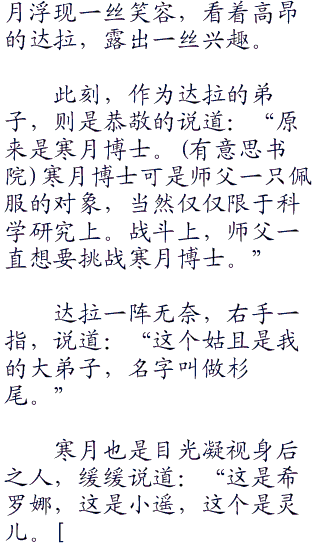 月浮现一丝笑容，看着高昂
的达拉，露出一丝兴趣。
此刻，作为达拉的弟
子，则是恭敬的说道：“原
来是寒月博士。(有意思书
院)寒月博士可是师父一只佩
服的对象，当然仅仅限于科
学研究上。战斗上，师父一
直想要挑战寒月博士。”
达拉一阵无奈，右手一
指，说道：“这个姑且是我
的大弟子，名字叫做杉
尾。”
寒月也是目光凝视身后
之人，缓缓说道：“这是希
罗娜，这是小遥，这个是灵
儿。[